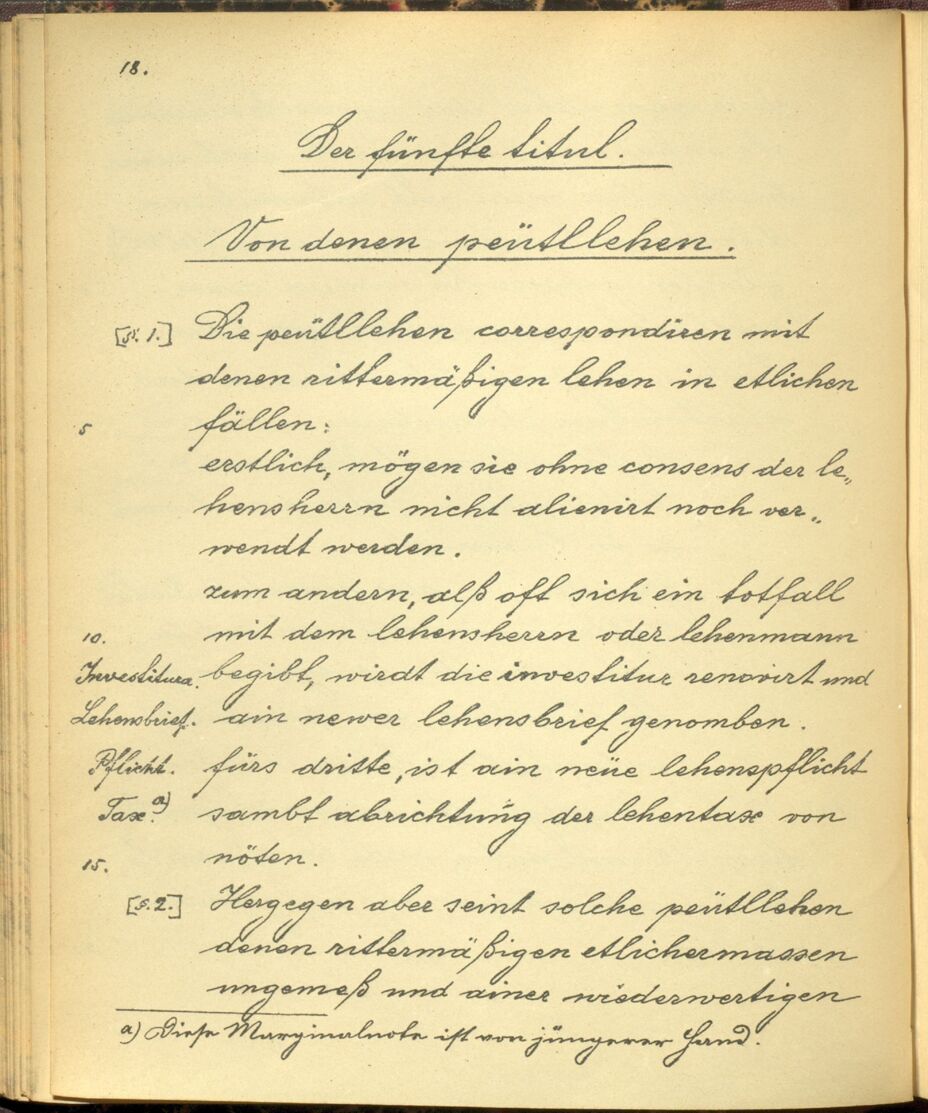 18.
Der fünfte titul.
Von denen peütllehen.
[§. 1.] Die peütllehen correspondiren mit
denen rittermäßigen lehen in etlichen
5 fällen:
erstlich, mögen sie ohne consens der le„
hensherrn nicht alienirt noch ver„
wendt werden.
zum andern, alß oft sich ein totfall
10. mit dem lehensherrn oder lehenmann
Investitura. begibt, wirdt die investitur renovirt und
Lehensbrief. ain newer lehensbrief genomben.
Pflicht. fürs dritte, ist ain neüe lehenspflicht
Tax.a) sambt abrichtung der lehentax von
15. nöten.
[§.2.] Hergegen aber seint solche peütllehen
denen rittermäßigen etlichermassen
ungemeß und ainer wiederwertigen
a) Diese Marginalnote ist von jüngerer Hand.